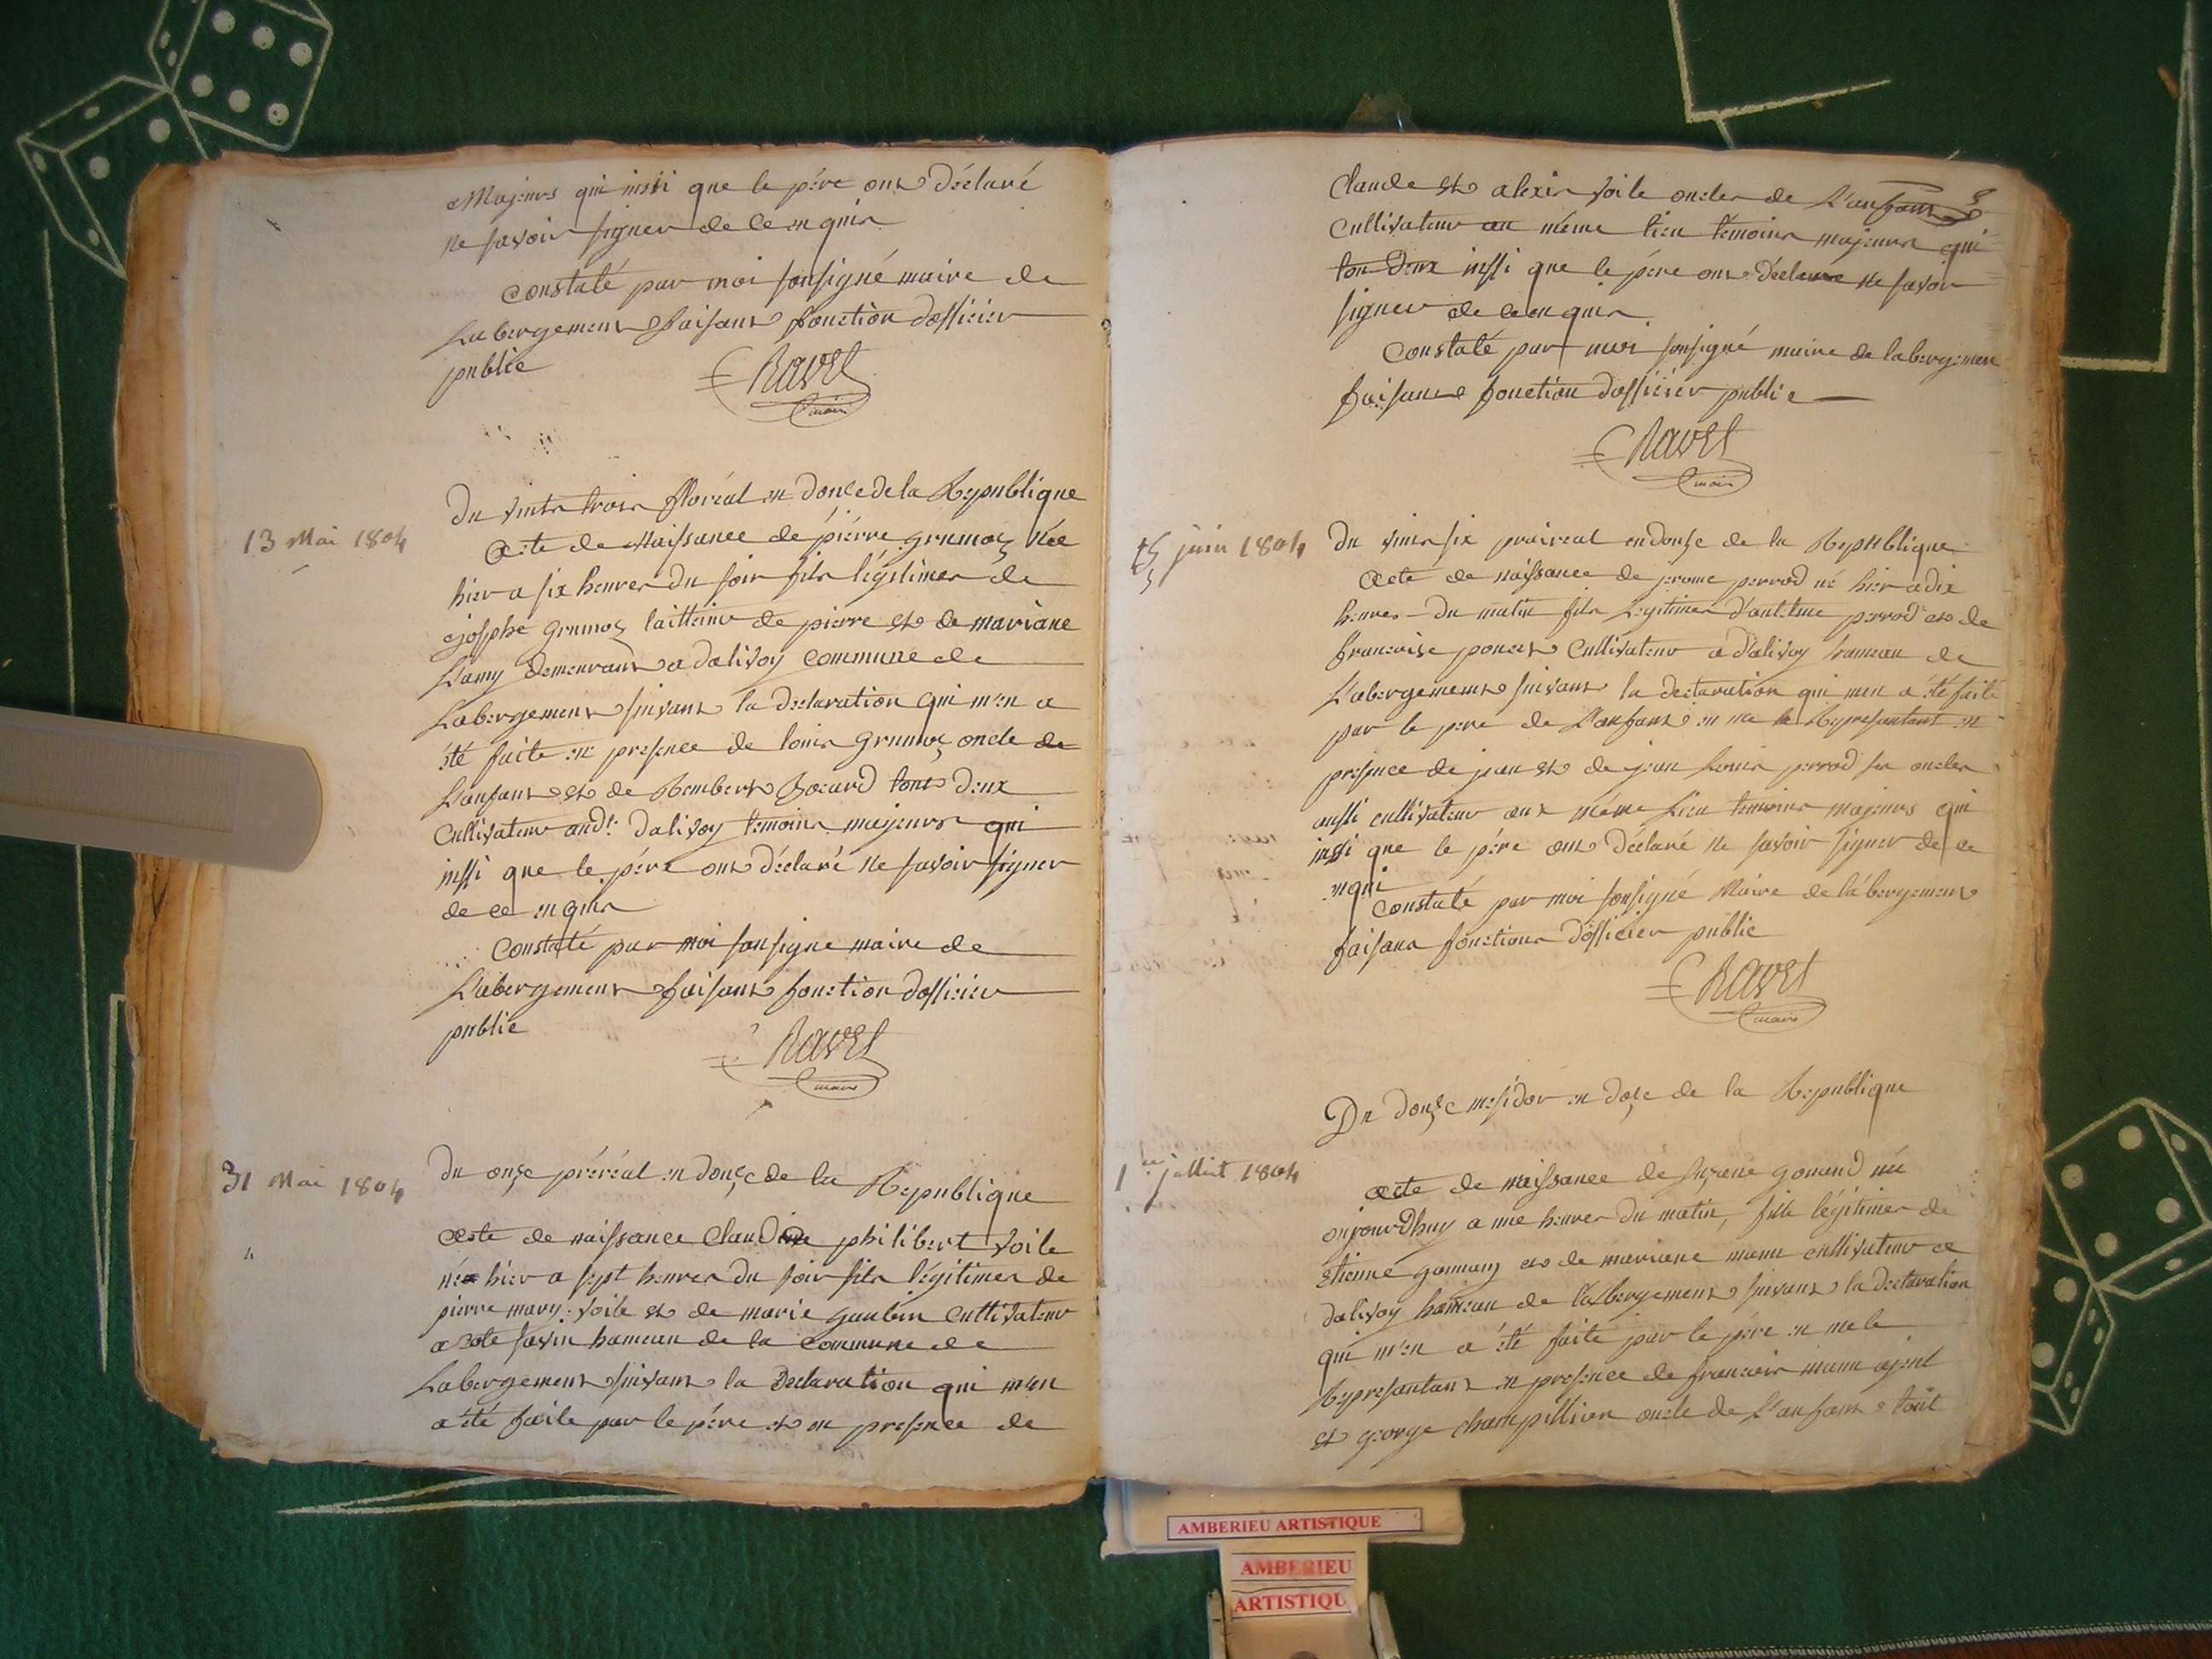 Majeurs qui insti que le père ont Déclaré
ne savoir signer de ce enquis
Constaté par moi sousigné maire de
Labergement faisant fonction dofficier
public
Ravet
maire
13 Mai 1804
Du vints trois floréal en Douse de la Republique
Acte de Naissance de piérre grumoz Née
hier a six heures du soir fils légitimes de
josphe grumoz laitteur de pierre et de mariane
Lamy Demeurant a dalivoy commune de
Labergement suivant la declaration qui m'en a
été faite en presence de louis grumoz oncle de
Lanfant et de Rembert Bocard tout Deux
Cultivateur aud.t Dalivoy temoins majeurs qui
insti que le père ont Déclaré Ne savoir signer
de ce enquis
Constaté par moi sousigne maire de
L'abergement faisant fonction dofficier
public
Ravet
maire
31 Mai 1804
Du onze préréal en Douze de la Republique
Acte de naissance Claudine philibert Voile
né hier a sept heures du soir fils légitimes de
pierre mary Voile et de marie gaubin Cultivateur
a Cote savin hameau de la commune de
Labergement suivant la Declaration qui m'en
a été faite par le père et en presence de
Claude et alexis Voile oncles de L'anfant
Cultivateur au même lieu témoins majeurs qui
tou Deux insti que le père ont Déclaré ne savoir
signer de ce enquis
Constaté par moi sousigné maire de labergemen
faisant fonction dofficier public
Ravet
maire
15 juin 1804
Du vints six praireal en douze de la Republique
Acte de naissance de jerome perrod né hier a dix
heures du matin fils Legitimes d'antelme perrod et de
francoise poncet Cultivateur a Dalivoy hameau de
Labergement suivant la declaration qui men a été faite
par le père de L'anfant en me le Representant en
presence de jean et de jean Louis perrod ses oncles
austi cultivateur aux même Lieu temoins majeurs qui
insti que le père ont Déclaré ne savoir signer de ce
enqui
Constaté par moi sousigné Maire de l'abergement
faisant fonctions Dofficier public
Ravet
maire
Du Douze mesidor en doze de la Republique
1er juillit 1804
Acte de naissance de suzane gomand née
onjourdhuy a une heures du matin, fille légitimes de
Etienne gomand et de mariane cultivateur a
Dalivoy hameau de l'abergement suivant la declaration
qui m'en a été faite par le père en me le
Represantant en presence de francois ajent
et george champillion oncle de L'anfant tout
AMBERIEU ARTISTIQUE
AMBERIEU
ARTISTIQU